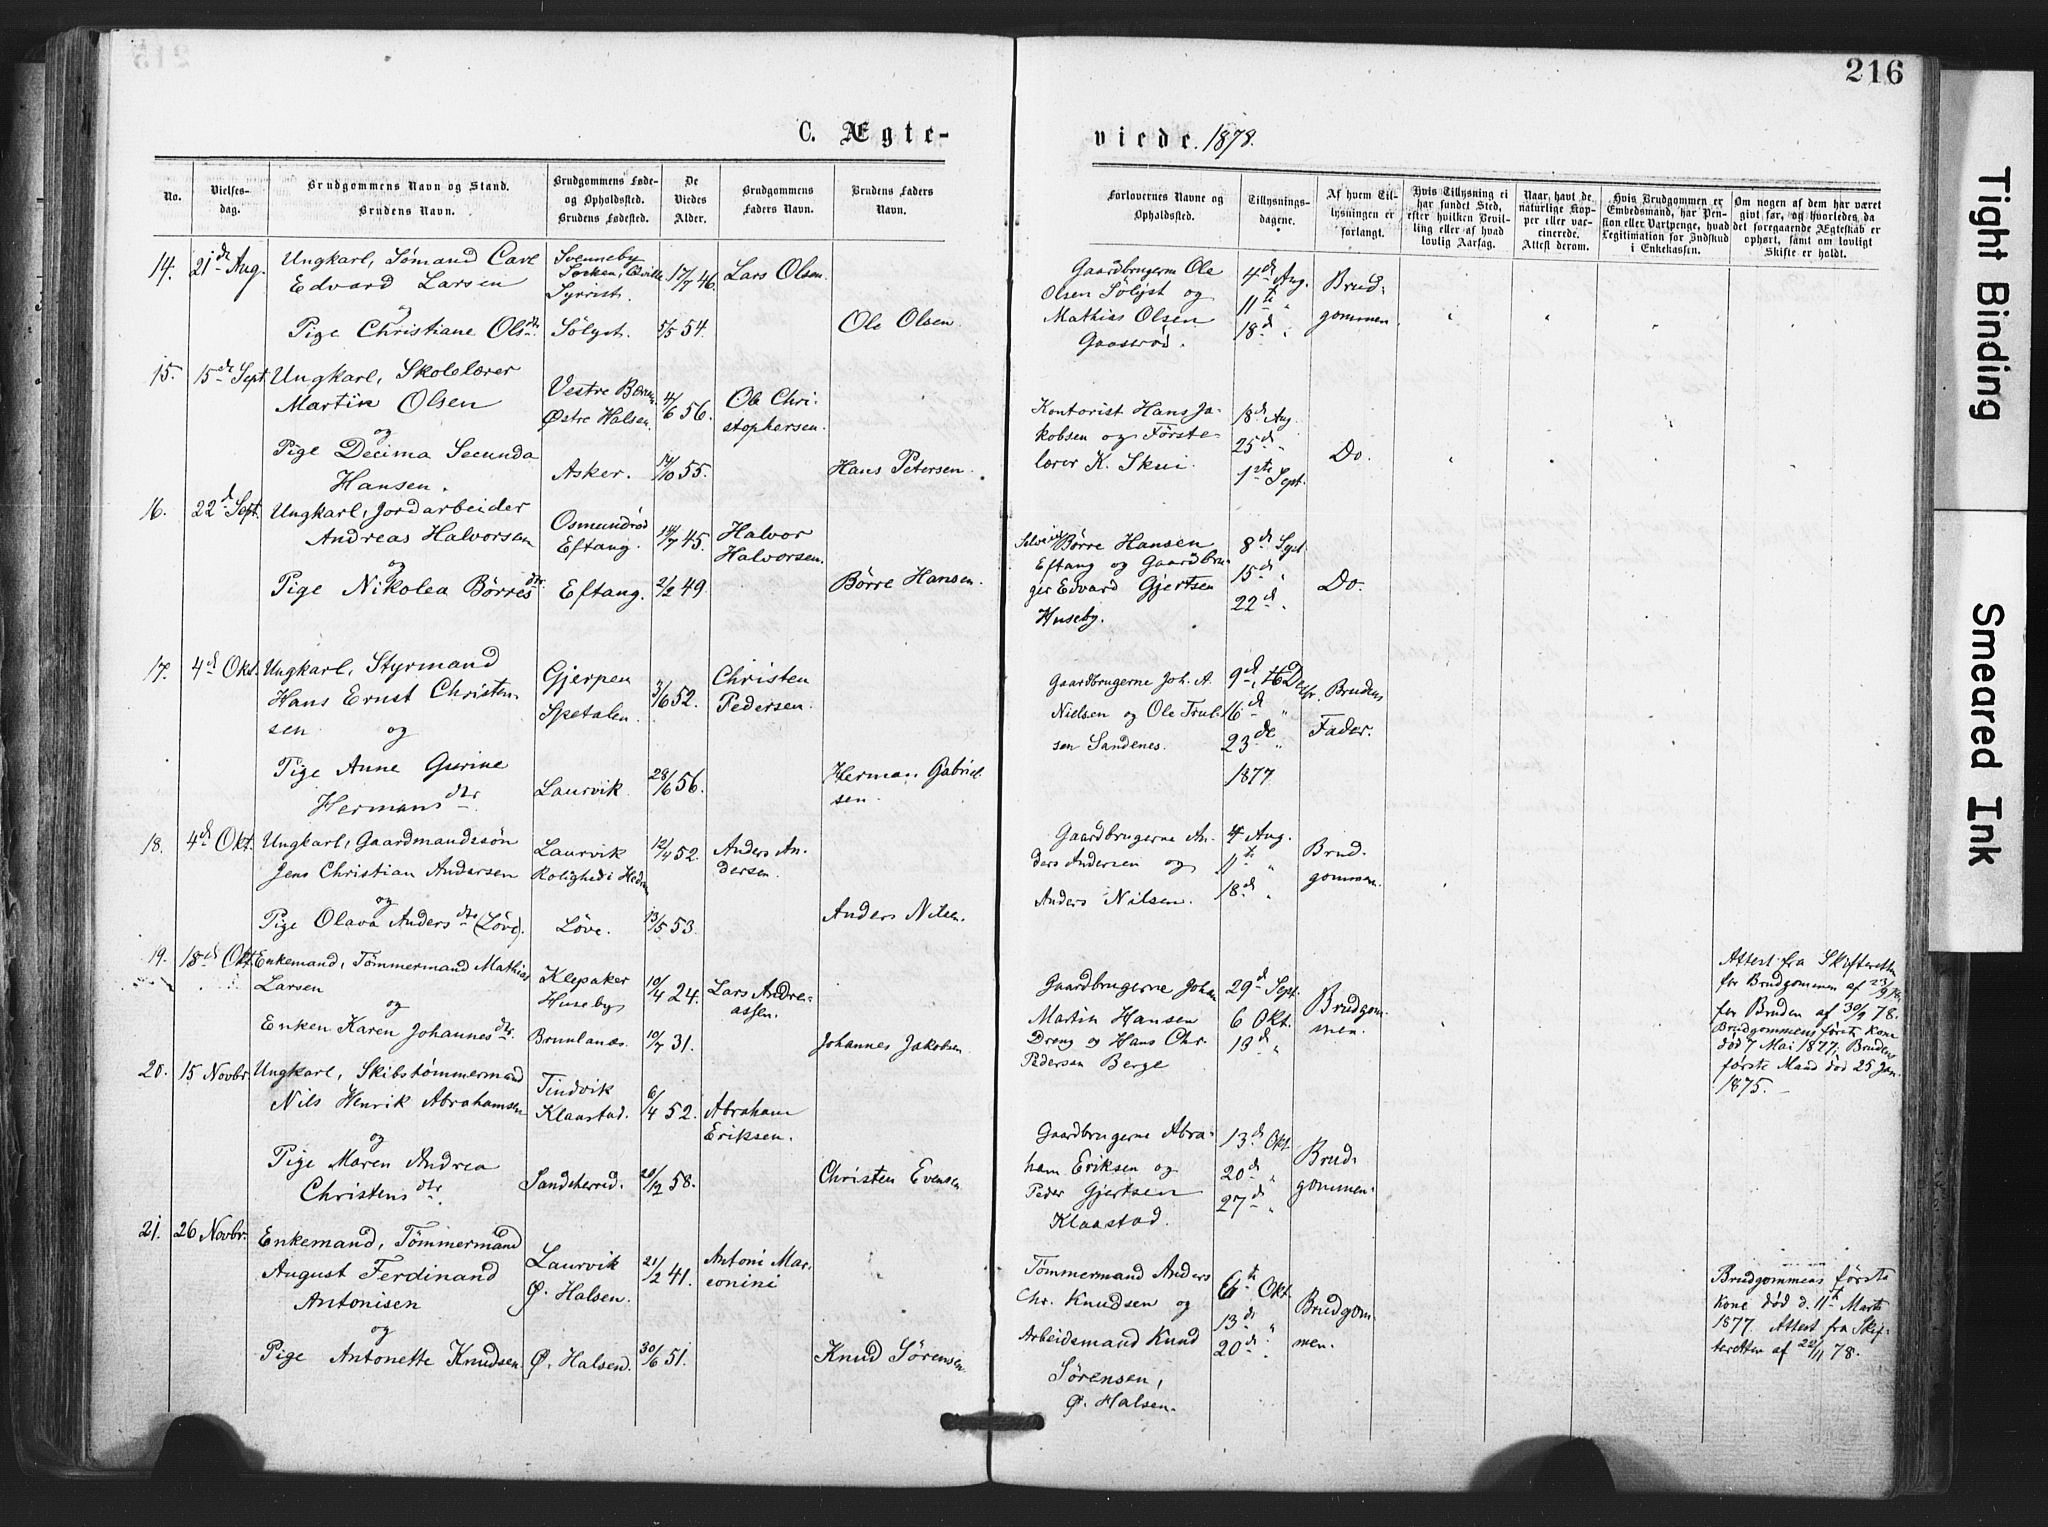 216
C. Ægte-
viede. 1878.
No.
Vielses-
dag.
Brudgommens Navn og Stand.
Brudens Navn.
Brudgommens Føde-
og Opholdssted.
Brudens Fødested.
De
Viedes
Alder.
Brudgommens
Faders Navn.
Brudens Faders
Navn.
Forlovernes Navne og
Opholdssted.
Tillysnings-
dagene.
Af hvem Til-
lysningen er
forlangt.
Hvis Tillysning ei
har fundet Sted,
efter hvilken Bevil-
ling eller af hvad
lovlig Aarsag.
Naar havt de
naturlige Kop-
per eller vac-
cinerede.
Attest derom.
Hvis Brudgommen er
Embedsmand, har Pen-
sion eller Vartpenge, hvad
Legitimation for Indskud
i Enkekassen.
Om nogen af dem har været
givt før, og hvorledes da
det foregaaende Ægteskab er
ophørt, samt om lovligt
Skifte er holdt.
14. 21de Aug. Ungkarl, Sømand Carl
Edvard Larsen
og
Pige Christiane Olsdtr
Svenneby
Sørist.
Sølyst.
17/7 46.
5/5 54.
Lars Olsen.
Ole Olsen.
Gaardbrugerne Ole
Olsen Sølyst og
Mathias Olsen
Gaasrød.
4de Aug.
11te "
18de "
Brud-
gommen.
15. 15de Sept. Ungkarl, Skolelærer
Martin Olsen
og
Pige Decima Secunda
Hansen.
Vestre Bærum
Østre Halsen.
Asker.
4/6 56.
14/10 55.
Ole Chri-
stophersen.
Hans Petersen.
Kontorist Hans Ja-
kobsen og Første-
lærer K. Skui.
18de Aug.
25de "
1ste Sept.
Do.
16. 22de Sept. Ungkarl, Jordarbeider
Andreas Halvorsen
og
Pige Nikolea Børresdtr.
Osmundrød
Eftang.
Eftang.
14/7 45.
2/2 49.
Halvor
Halvorsen.
Børre Hansen.
Selveier Børre Hansen
Eftang og Gaardbru-
ger Edvard Gjertsen
Huseby.
8de Sept
15de "
22de "
Do.
17. 4de Okt. Ungkarl, Styrmand
Hans Ernst Christen-
sen og
Pige Anne Gurine
Hermansdtr.
Gjerpen
Spetalen.
Laurvik.
3/6 52.
28/6 56.
Christen
Pedersen.
Herman Gabriel-
sen.
Gaardbrugerne Joh. A.
Nielsen og Ole Truls-
sen Sandenes.
9de, Decbr.
16de "
23de "
1877
Brudens
Fader.
18. 4de Okt. Ungkarl, Gaardmandssøn
Jens Christian Andersen
og
Pige Olava Andersdtr (Løve).
Laurvik
Rolighed i Hedrum
Løve.
12/4 52.
13/5 53.
Anders An-
dersen.
Anders Nilsen.
Gaardbrugerne An-
ders Andersen og
Anders Nilsen.
4 Aug.
11te "
18de "
Brud-
gommen.
19. 18de Okt. Enkemand, Tømmermand Mathias
Larsen
og
Enken Karen Johannesdtr.
Klepaker
Huseby
Brunlanæs.
10/4 24.
10/7 31.
Lars Andre-
assen.
Johannes Jakobsen.
Gaardbrugerne Johan
Martin Hansen
Dreng og Hans Chr.
Pedersen Berge
29de Sept.
6 Okt.
13de "
Brudgom-
men.
Attest fra Skifteretten
for Brudgommen af 23/9
for Bruden af 30/9 78.
Brudgommens første Kone
død 7 Mai 1877; Brudens
første Mand død 25 Jan.
1875.
20. 15 Novbr. Ungkarl, Skibstømmermand
Nils Henrik Abrahamsen
og
Pige Maren Andrea
Christensdtr.
Tindvik
Klaastad.
Sandeherred.
6/4 52.
20/12 58.
Abraham
Eriksen.
Christen Evensen
Gaardbrugerne Abra-
ham Eriksen og
Peder Gjertsen
Klaastad.
13de Okt
20de "
27de "
Brud-
gommen.
21. 26 Novbr. Enkemand, Tømmermand
August Ferdinand
Antonisen
og
Pige Antonette Knudsen.
Laurvik
Ø. Halsen.
Ø. Halsen.
21/2 41.
30/6 51.
Antoni Mar-
conini
Knud Sørensen.
Tømmermand Anders
Chr. Knudsen og
Arbeidsmand Knud
Sørensen,
Ø. Halsen.
6te Okt
13de "
20de "
Brudgom-
men.
Brudgommens første
Kone død d. 11te Marts
1877. Attest fra Skif-
teretten af 22/11 78.
Tight Binding
Smeared Ink